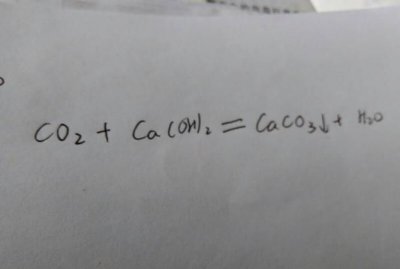 CO₂ + Ca(OH)₂ = CaCO₃↓ + H₂O